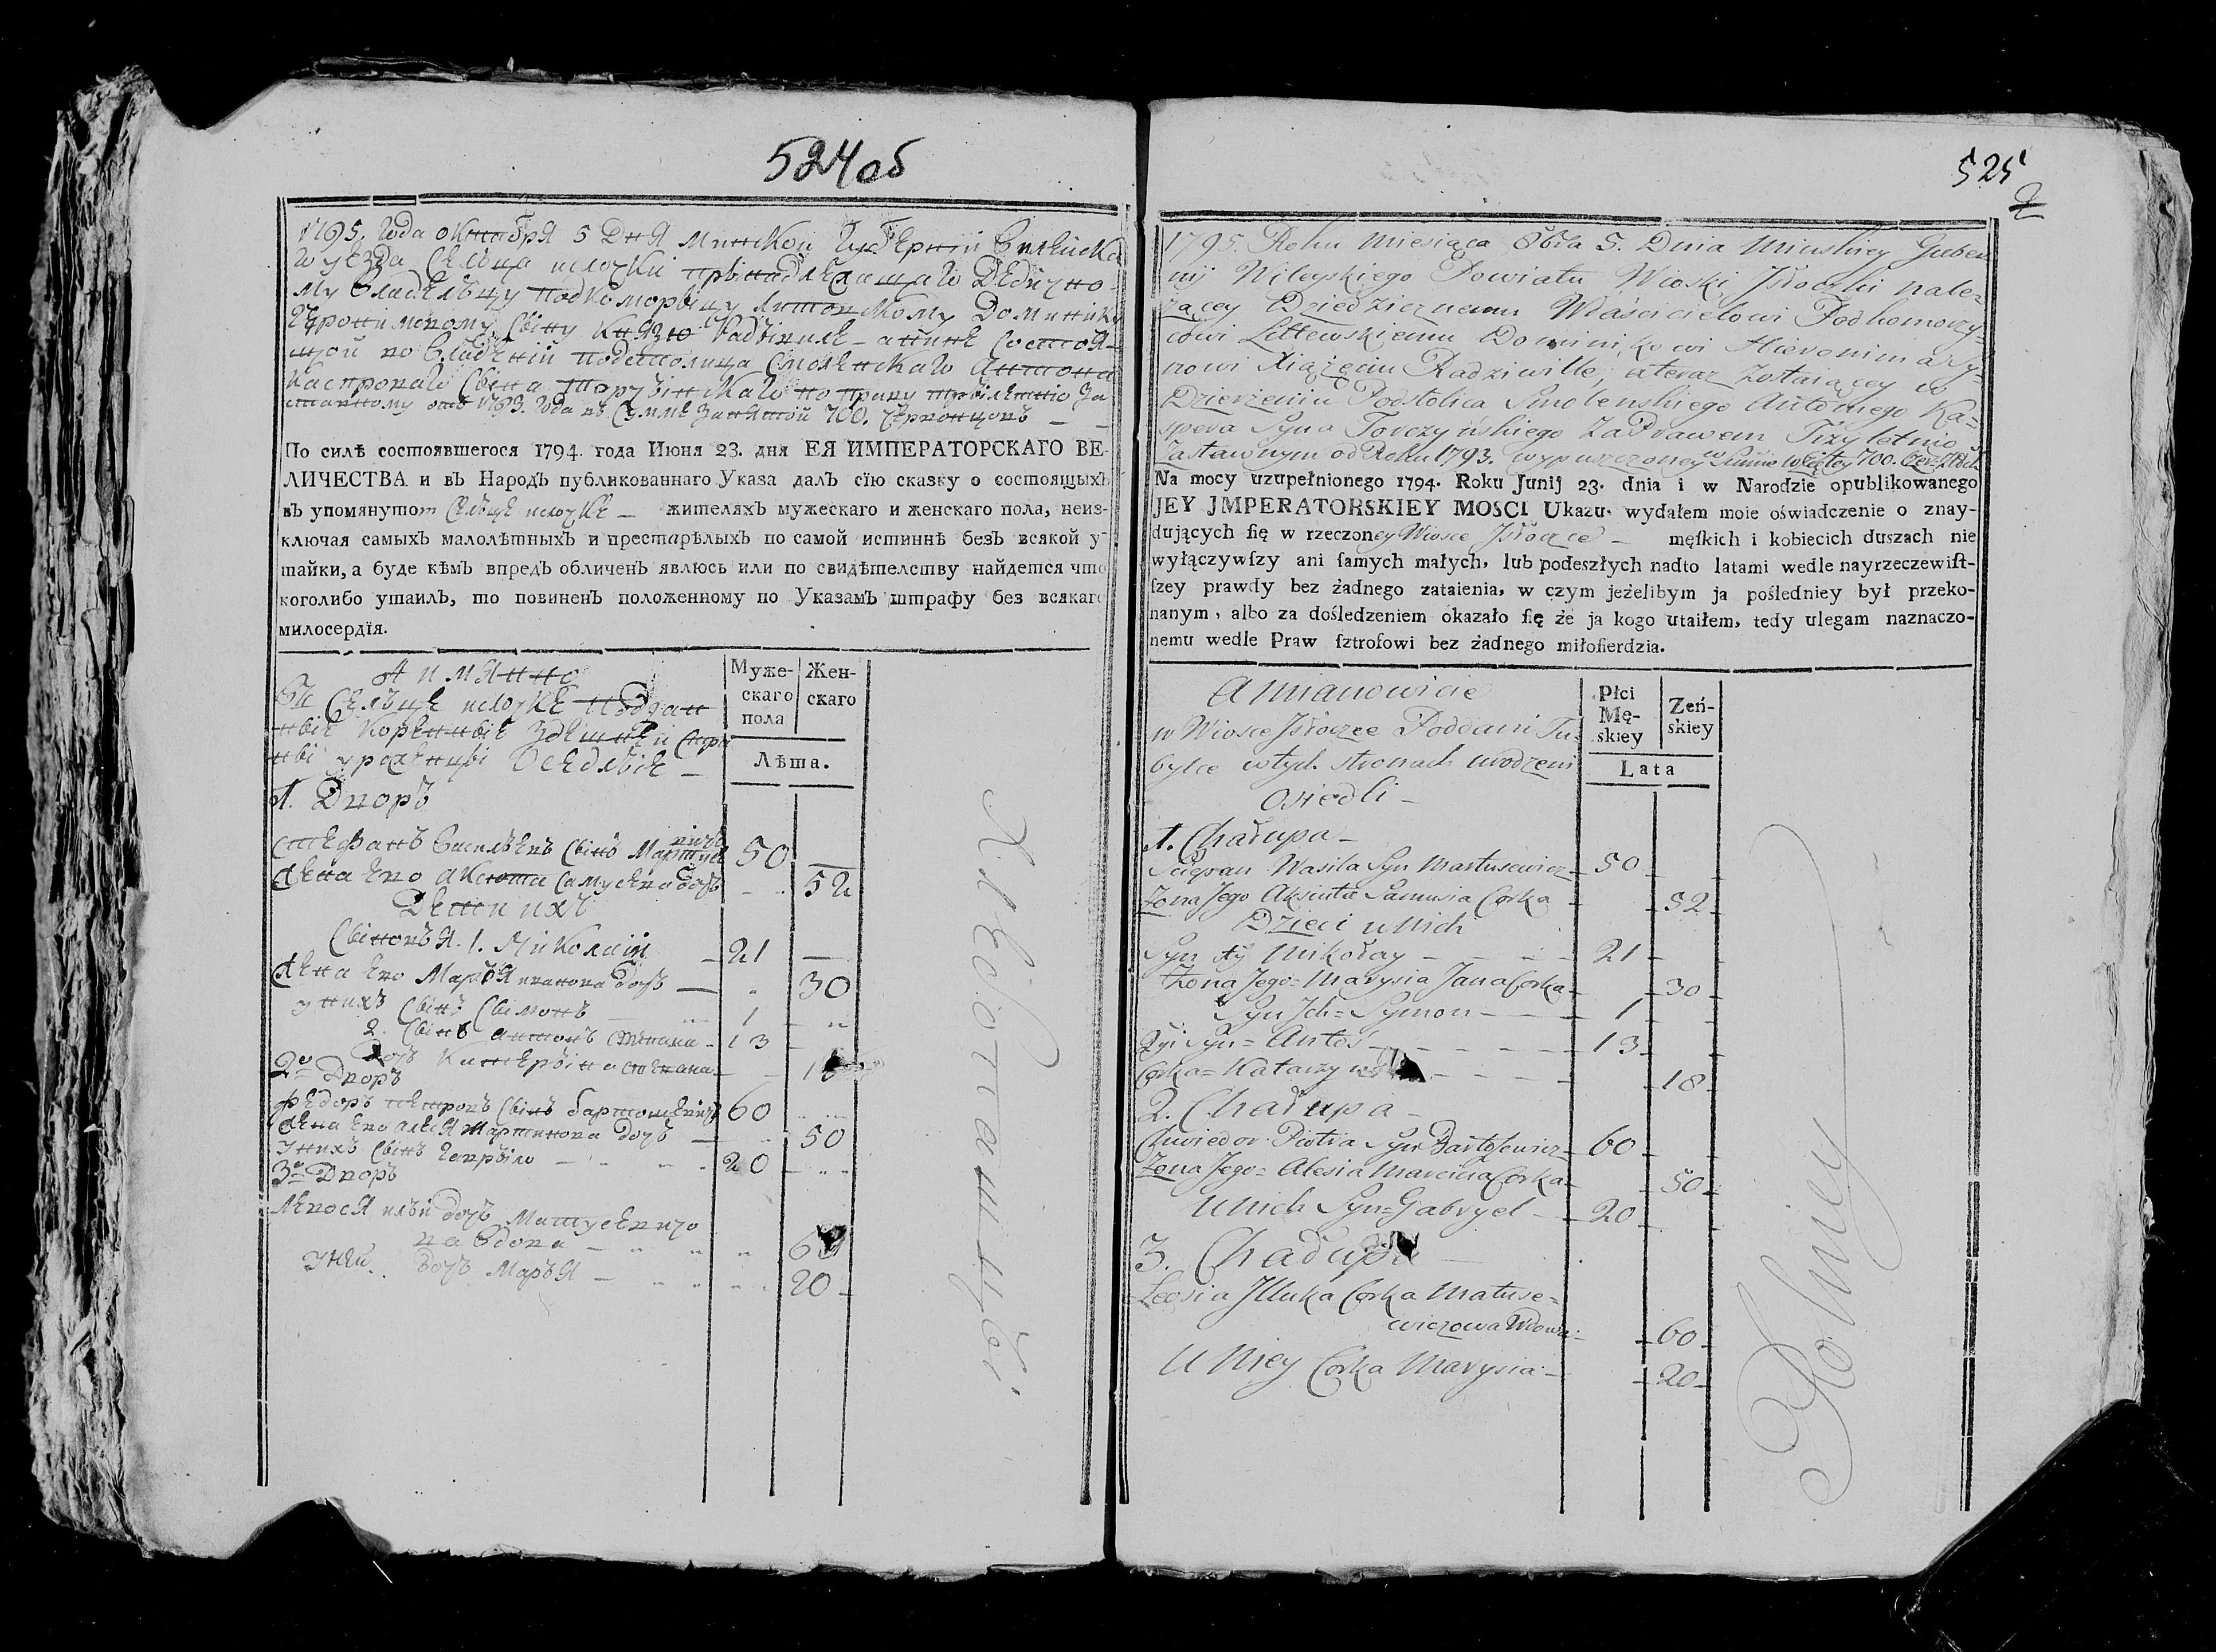 524 об
1795. Года октября 5 дня минской губернии Вилейска
го уезда селца ислочки принадлежащаго дедично
му владельцу подкоморвицу литовскому Доминику
Геронимовому сыну князю Радзивиле а ныне состоя
щой во владении подстолица смоленскаго антона
каспроваго сына торузинскаго по праву трилетнио за
ставному от 1793. года в сумме занятой 700. червонцов
По силѣ состоявшегося 1794. года Июня 23. дня ЕЯ ИМПЕРАТОРСКАГО ВЕ-
ЛИЧЕСТВА и въ Народъ публикованнаго Указа далъ сїю сказку о состоящыхъ
въ упомянутом селце ислочке — жителяхъ мужескаго и женскаго пола, неиз-
ключая самыхъ малолѣтныхъ и престарѣлыхъ по самой истиннѣ безъ всякой у-
тайки, а буде кѣмъ впредъ обличенъ явлюсь или по свидѣтелству найдется что
коголибо утаилъ, то повиненъ положенному по Указамъ штрафу без всякаго
милосердїя.
А имянно
Муже-
скаго
пола
Жен-
скаго
Лѣта.
В селце ислочке поддан
ные коренные здешней сторо
ны уроженцы оседлые
1. Дворъ
стефанъ василевъ сынъ мартусевичъ 50
жена ево аксюта самусева дочь 52
Дети ихъ
Сыновья. 1. Миколай 21
жена ево Марья иванова дочь 30
у нихъ сынъ сымонъ 1
2. сынъ антонъ степана 13
дочь катерына степана
2й Дворъ
федоръ петровъ сынъ бартошевичъ 60
жена ево алеся мартинова дочь 50
у нихъ сынъ гаврыло 20
3й Дворъ
левося ильи дочь матусевичо
ва вдова
у ней дочь марья 20
Хлеботанцы.
525
2
1795. Roku Miesiąca 8bra 5. Dnia Minskiey Guber
nij Wileyskiego Powiatu Wioski Jsłoczki nale-
żącey Dziedzicznemu Właścicielowi Podkomorzy-
cowi Littewskiemu Dominikowi Hieronima Sy-
nowi Xiążęciu Radziwille, ateraz zostaiącey w
Dzierżeniu Podstolica Smolenskiego Antoniego Ka-
spera Syna Torczyńskiego za Prawem Trzyletnio
Zastawnym od Roku 1793. wypuszczoney w Summie Wziętey 700. Czer: Złotch
Na mocy uzupełnionego 1794. Roku Junij 23. dnia i w Narodzie opublikowanego
JEY JMPERATORSKIEY MOSCI Ukazu. wydałem moie oświadczenie o znay-
dujących się w rzeczoney Wiosce Jsłoczce — męſkich i kobiecich duszach nie
wyłączywſzy ani ſamych małych, lub podeszłych nadto latami wedle nayrzeczewiſt-
ſzey prawdy bez żadnego zataienia, w czym jeżelibym ja poſledniey był przeko-
nanym, albo za dośledzeniem okazało ſię że ja kogo utaiłem, tedy ulegam naznaczo-
nemu wedle Praw ſztrofowi bez żadnego miłoſierdzia.
Amianowicie
Płci
Mę-
skiey
Zeń-
skiey
Lata
w Wiosce Jsłoczce Poddani Tu-
bylce wtych stronach urodzeni
Osiedli —
1. Chałupa —
Sciepan Wasila Syn Martusewicz 50
Żona Jego Aksiuta Samusia Corka 52
Dzieci u Nich
Syn 1y Mikołay 21
Żona Jego = Marysia Jana Corka 30
Syn Jch = Symon 1
2gi Syn = Antoś 13
Corka = Katarzyna 18
2. Chałupa —
Chwiedor Piotra Syn Bartosewicz 60
Żona Jego = Alesia Marcina Corka 50
U Nich Syn = Gabryel 20
3. Chałupa
Leosia Jlluka Corka Matuse-
wiczowa Wdowa 60
U Niey Corka Marysia 20
Rolniey